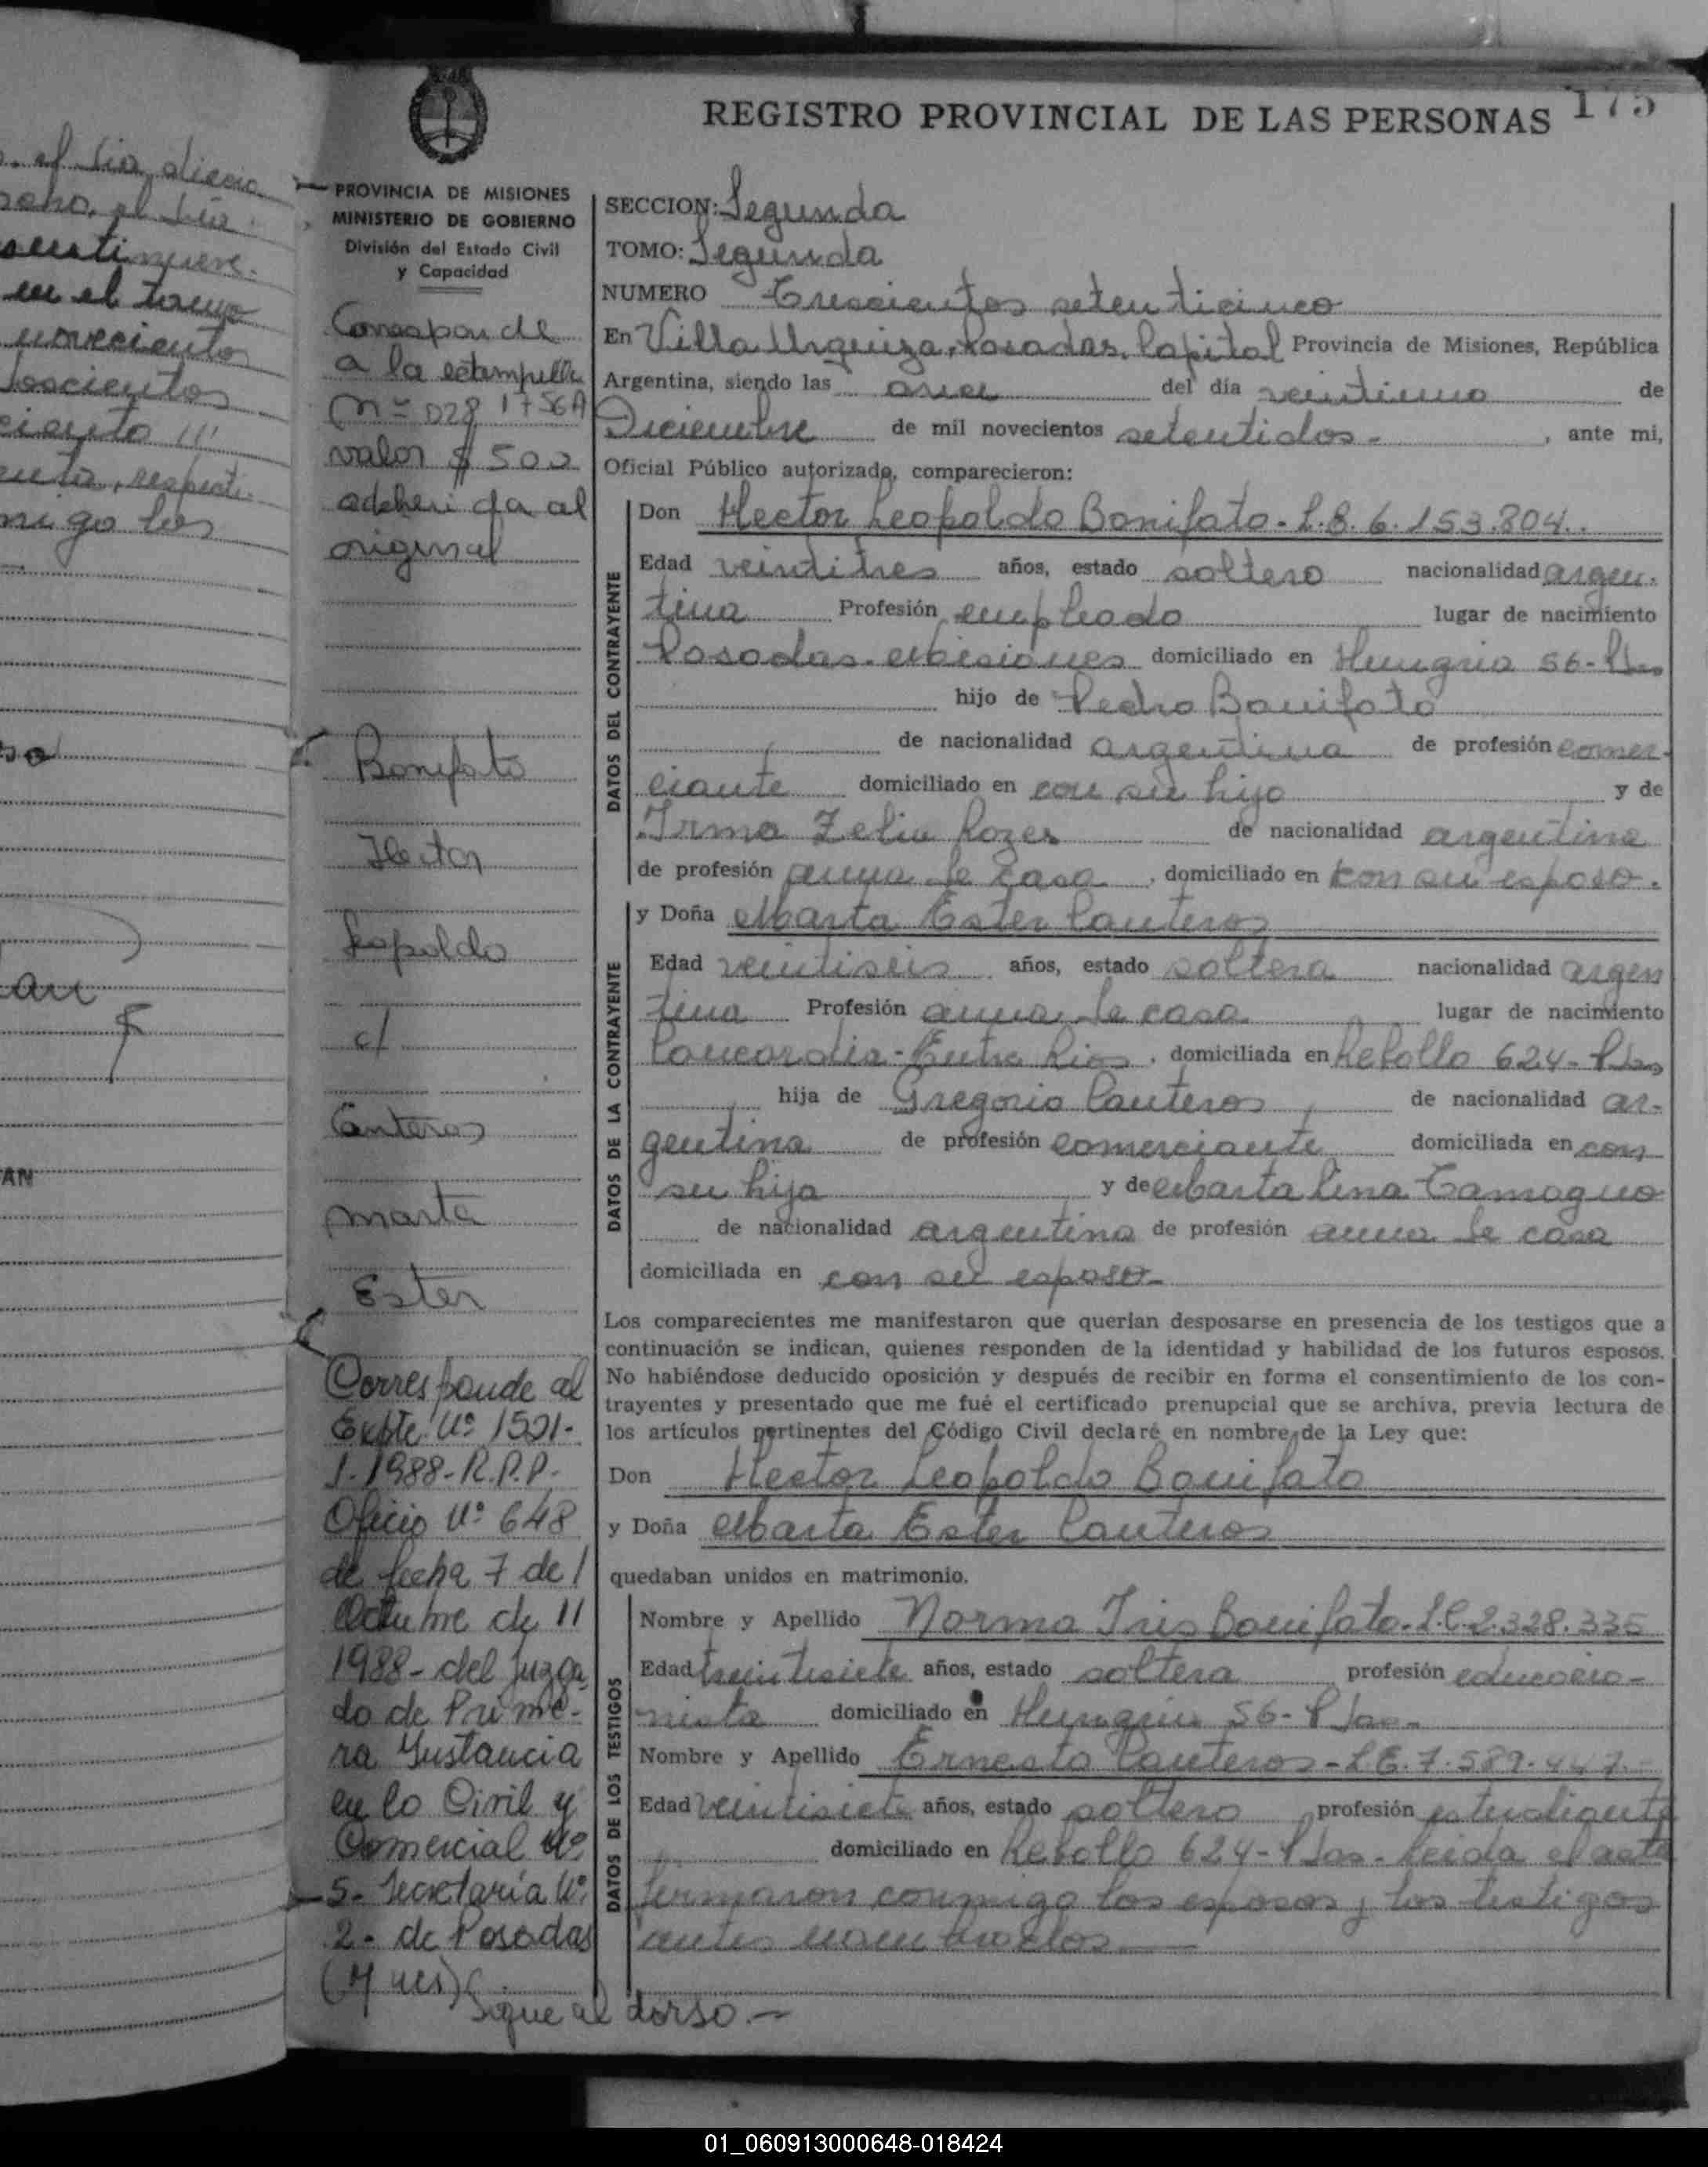 REGISTRO PROVINCIAL DE LAS PERSONAS 175
el dia
el dia
en el tomo
novecientos
migo los
AN
PROVINCIA DE MISIONES
MINISTERIO DE GOBIERNO
División del Estado Civil
y Capacidad
Corresponde
a la estampilla
Nº 028 1756A
valor $ 500
adherida al
original
Bonifato
Hector
Leopoldo
c/
Canteros
Marta
Ester
Corresponde al
Expte. Nº 1591-
1988-R.P.P.-
Oficio Nº 648
de fecha 7 de /
Octubre de 11
1988- del Juzga
do de Prime-
ra Instancia
en lo Civil y
Comercial Nº
5- Secretaría Nº
2- de Posadas
(Mnes)
Sigue al dorso.-
SECCION: Segunda
TOMO: Segunda
NUMERO Trescientos setenticinco
En Villa Urquiza, Posadas, Capital Provincia de Misiones, República
Argentina, siendo las once del día veintiuno de
Diciembre de mil novecientos setentidos.- , ante mi,
Oficial Público autorizado, comparecieron:
DATOS DEL CONTRAYENTE
Don Hector Leopoldo Bonifato- 6.153.804.
Edad veintitres años, estado soltero nacionalidad argen-
tina Profesión empleado lugar de nacimiento
Posadas-Misiones domiciliado en Hungria 56- Pdas
hijo de Pedro Bonifato
de nacionalidad argentina de profesión comer-
ciante domiciliado en con su hijo y de
Irma Zelia de nacionalidad argentina
de profesión ama de casa , domiciliado en con su esposo.
DATOS DE LA CONTRAYENTE
y Doña Marta Ester Canteros
Edad veintiseis años, estado soltera nacionalidad argen
tina Profesión ama de casa lugar de nacimiento
Concordia-Entre Rios , domiciliada en Rebollo 624- Pdas
hija de Gregorio Canteros de nacionalidad ar-
gentina de profesión comerciante domiciliada en con
su hija y de Marta Lina Tamagno
de nacionalidad argentina de profesión ama de casa
domiciliada en con su esposo-
Los comparecientes me manifestaron que querian desposarse en presencia de los testigos que a
continuación se indican, quienes responden de la identidad y habilidad de los futuros esposos.
No habiéndose deducido oposición y después de recibir en forma el consentimiento de los con-
trayentes y presentado que me fué el certificado prenupcial que se archiva, previa lectura de
los artículos pertinentes del Código Civil declaré en nombre de la Ley que:
Don Hector Leopoldo Bonifato
y Doña Marta Ester Canteros
quedaban unidos en matrimonio.
DATOS DE LOS TESTIGOS
Nombre y Apellido Norma Iris Bonifato- L.C. 2.328.335
Edad treintisiete años, estado soltera profesión educacio-
nista domiciliado en Hungria 56- Pdas-
Nombre y Apellido Ernesto Canteros- L.E. 7.589.447.-
Edad veintisiete años, estado soltero profesión estudiante
domiciliado en Rebollo 624- Pdas- Leida el acta
firmaron conmigo los esposos y los testigos
antes nombrados.
01_060913000648-018424